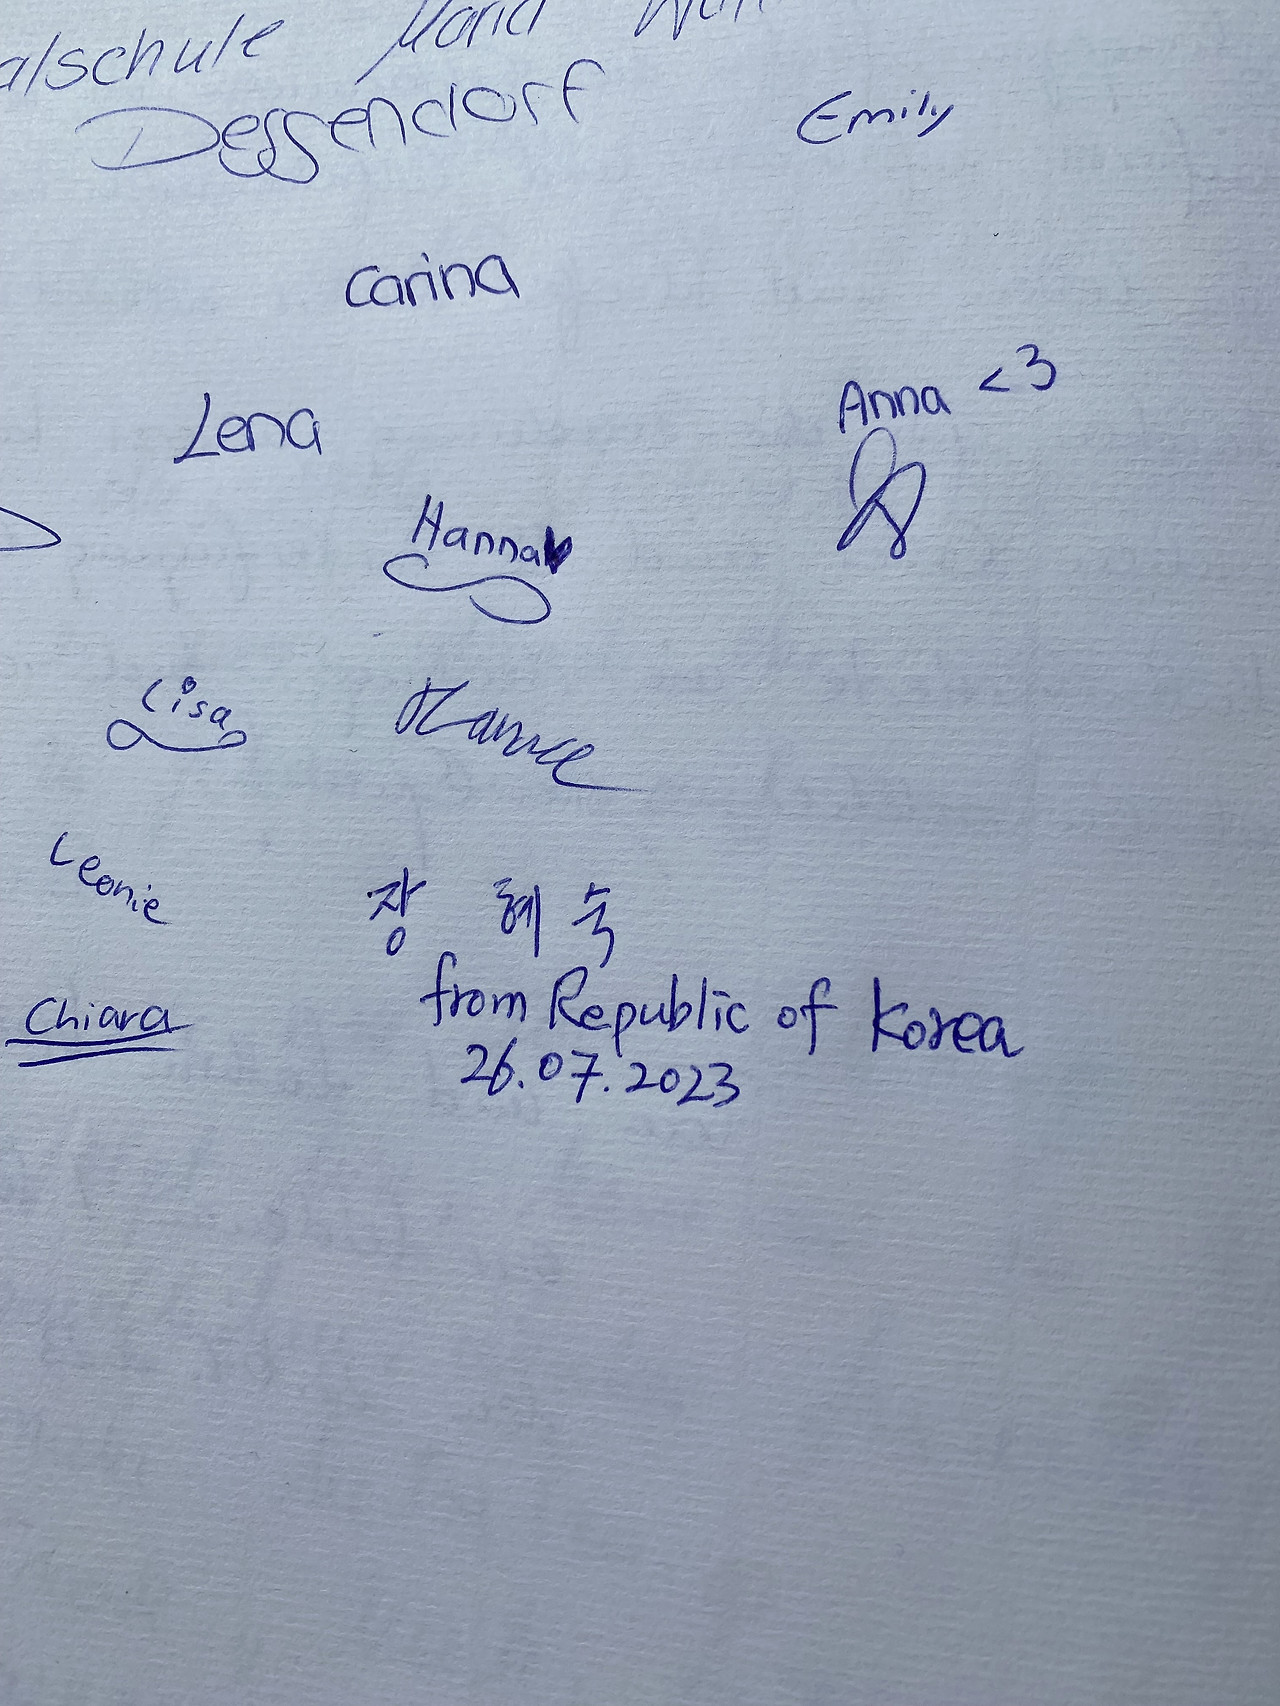 alschule Maria
Deggendorf
Emily
Carina
Anna <3
Lena
Hanna
Lisa
Leonie
장 혜숙
from Republic of Korea
Chiara
26.07.2023